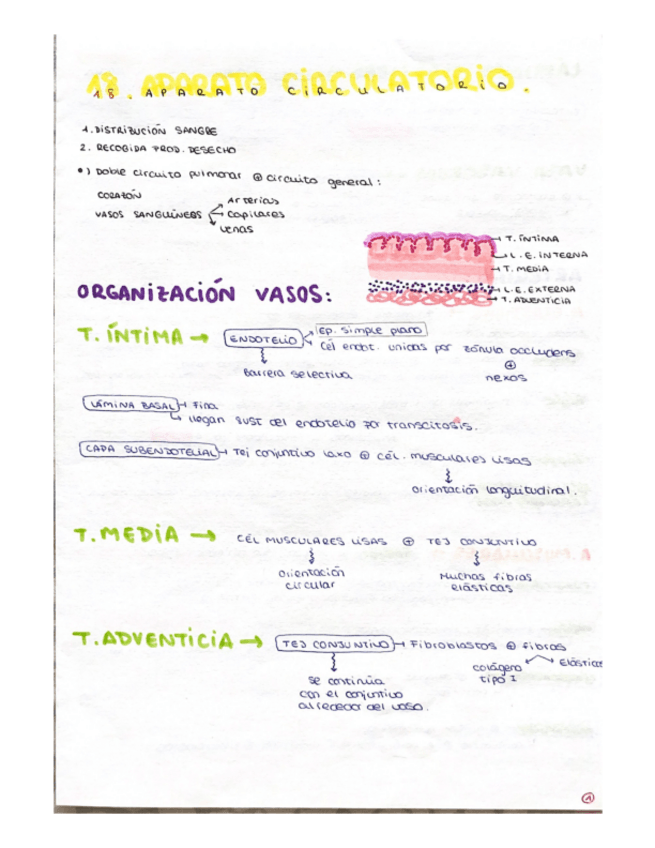 18. APARATO CIRCULATORIO.
1. DISTRIBUCIÓN SANGRE
2. RECOGIDA PROD. DESECHO
•) Doble circuito pulmonar ⊕ circuito general:
CORAZÓN
VASOS SANGUÍNEOS → Arterias
→ Capilares
→ Venas
T. ÍNTIMA
L. E. INTERNA
T. MEDIA
L. E. EXTERNA
T. ADVENTICIA
ORGANIZACIÓN VASOS:
T. ÍNTIMA → ENDOTELIO → Ep. simple plano
→ Cél endot. unidas por zónula occludens
⊕
nexos
Barrera selectiva
LÁMINA BASAL → Fina
→ llegan sust del endotelio por transcitosis.
CAPA SUBENDOTELIAL → Tej conjuntivo laxo ⊕ cél. musculares lisas
orientación longuitudinal.
T. MEDIA → CÉL MUSCULARES LISAS ⊕ TEJ CONJUNTIVO
Orientación
circular
Muchas fibras
elásticas
T. ADVENTICIA → TEJ CONJUNTIVO → Fibroblastos ⊕ fibras
colágeno
tipo I
se continúa
con el conjuntivo
alrededor del vaso.
1